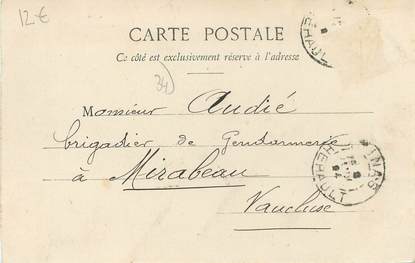 12 €
CARTE POSTALE
Ce côté est exclusivement réservé à l'adresse
34
Monsieur Audié
brigadier de Gendarmerie
à Mirabeau
Vaucluse
HERAULT
HERAULT